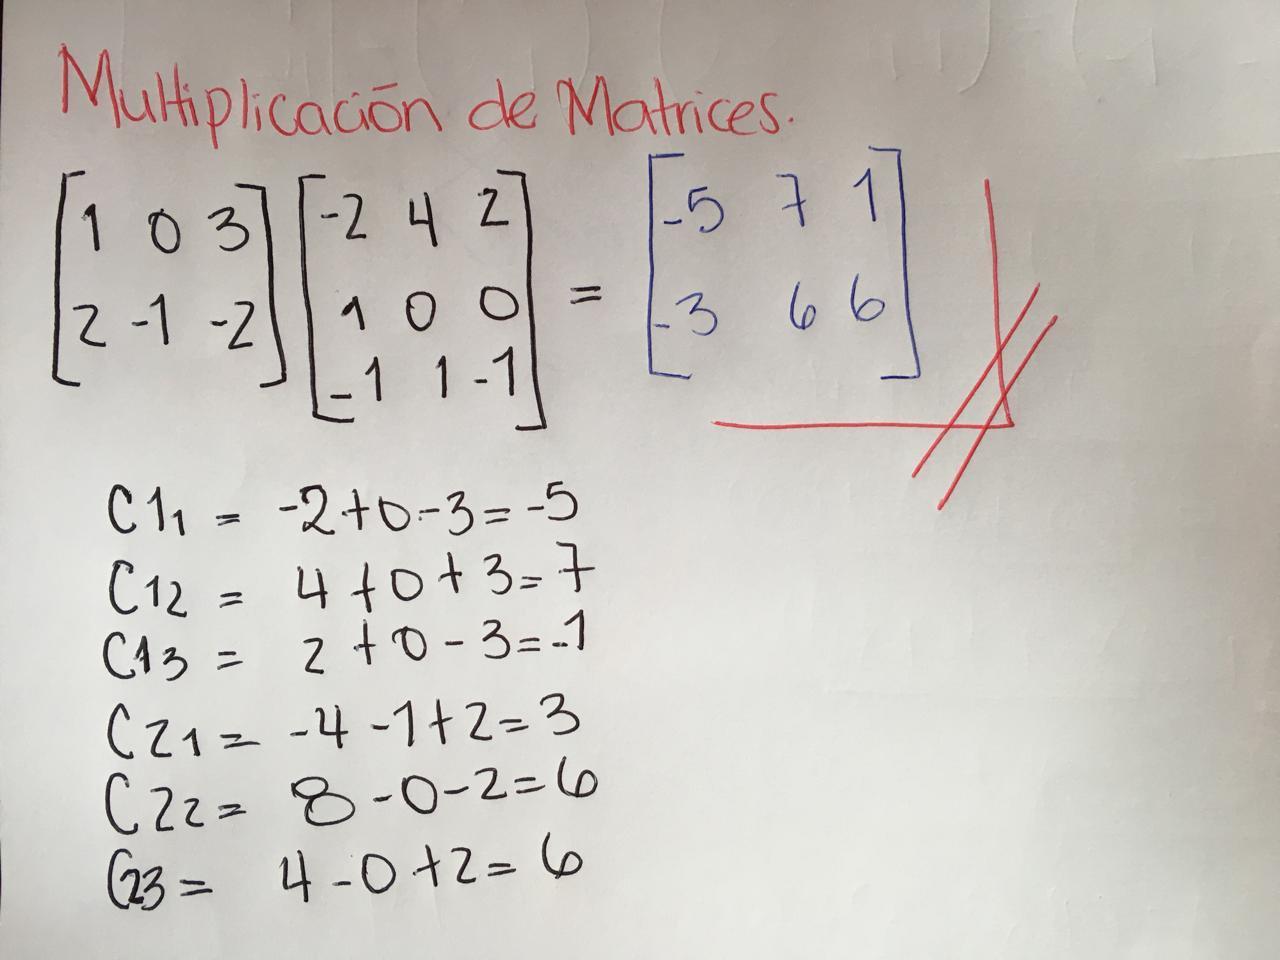 Multiplicación de Matrices.
[1 0 3] [-2 4 2] = [-5 7 1]
[2 -1 -2] [1 0 0] [-3 6 6]
[-1 1 -1]
C11 = -2+0-3=-5
C12 = 4+0+3=7
C13 = 2+0-3=-1
C21 = -4-1+2=3
C22 = 8-0-2=6
C23 = 4-0+2=6